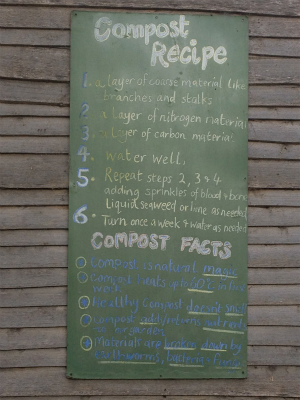 Compost
Recipe
1. a layer of coarse material like
branches and stalks
2. a layer of nitrogen material
3. a layer of carbon material
4. water well,
5. Repeat steps 2, 3 & 4
adding sprinkles of blood & bone
Liquid seaweed or lime as needed
6. Turn once a week & water as needed
COMPOST FACTS
Compost is natural magic
Compost heats up to 60°c in first
week
Healthy compost doesn't smell
Compost adds/returns nutrients
to garden
Materials are broken down by
worms, bacteria &